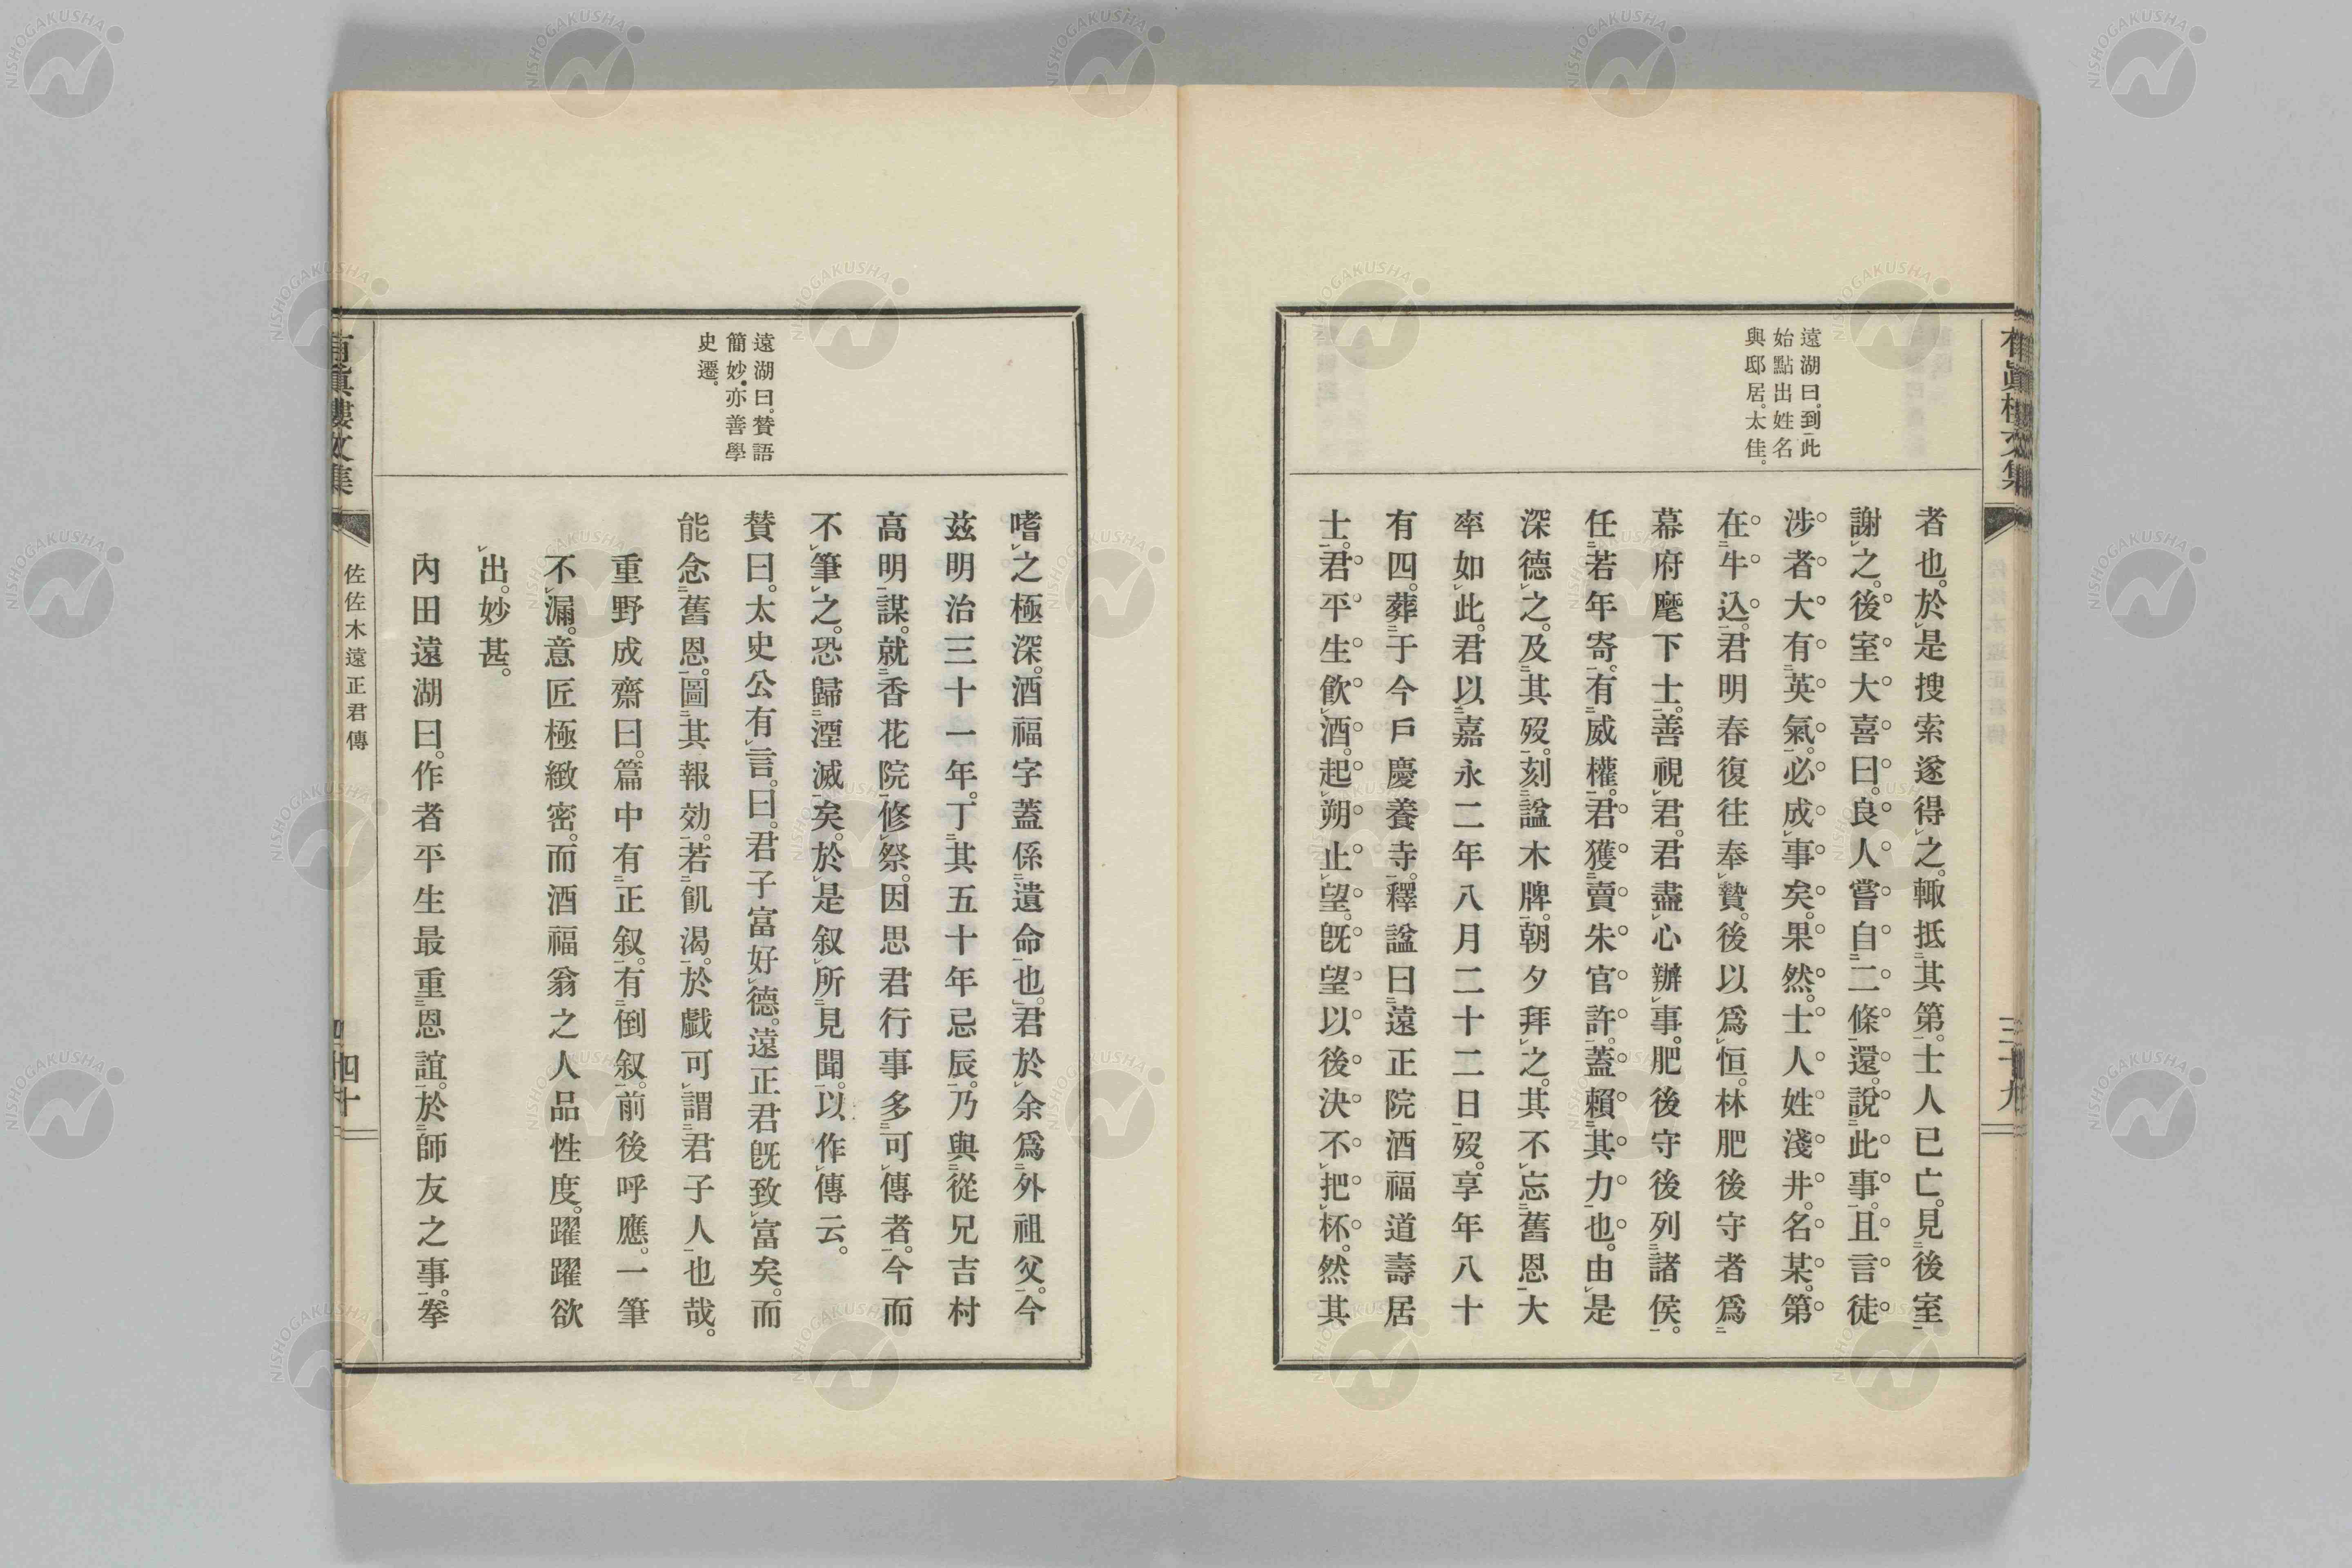 遠湖曰。到此
始點出姓名
與邸居。太佳。
者也。於是搜索遂得之。輙抵其第。士人已亡。見後室
謝之。後室大喜曰。良人嘗自二條還。說此事。且言徒
涉者大有英氣。必成事矣。果然。士人姓淺井。名某。第
在牛込。君明春復往奉贄。後以爲恒。林肥後守者爲
幕府麾下士。善視君。君盡心辦事。肥後守後列諸侯。
任若年寄。有威權。君獲賣朱官許。蓋賴其力也。由是
深德之。及其歿。刻諡木牌。朝夕拜之。其不忘舊恩大
率如此。君以嘉永二年八月二十二日歿。享年八十
有四。葬于今戶慶養寺。釋諡曰遠正院酒福道壽居
士。君平生飮酒。起朔止望。旣望以後決不把杯。然其
三十九
遠湖曰。贊語
簡妙。亦善學
史遷。
嗜之極深。酒福字蓋係遺命也。君於余爲外祖父。今
玆明治三十一年。丁其五十年忌辰。乃與從兄吉村
高明謀。就香花院修祭。因思君行事多可傳者。今而
不筆之。恐歸湮滅矣。於是叙所見聞。以作傳云。
贊曰。太史公有言。曰。君子富好德。遠正君旣致富矣。而
能念舊恩。圖其報効。若飢渴。於戱可謂君子人也哉。
重野成齋曰。篇中有正叙。有倒叙。前後呼應。一筆
不漏。意匠極緻密。而酒福翁之人品性度。躍躍欲
出。妙甚。
內田遠湖曰。作者平生最重恩誼。於師友之事。拳
有眞樓文集
佐佐木遠正君傳
四十